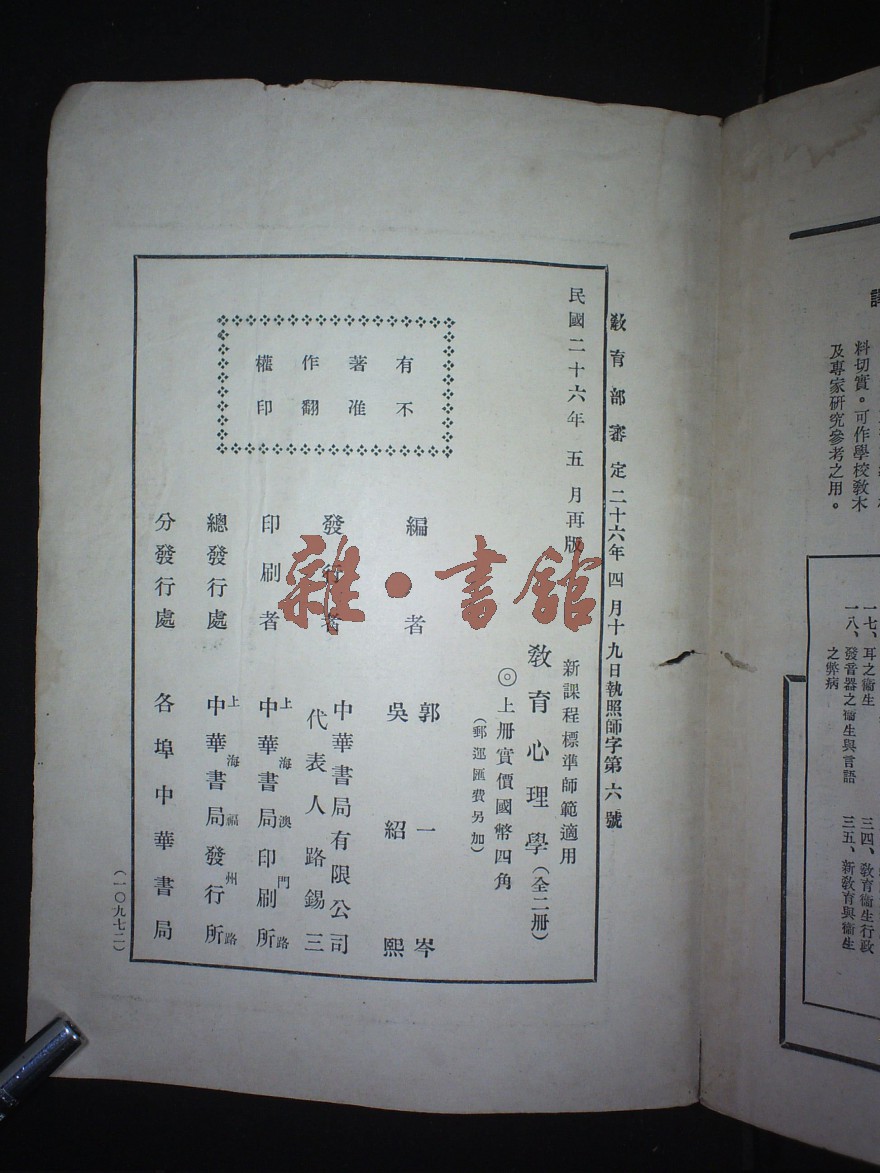 教育部審定二十六年四月十九日執照師字第六號
民國二十六年五月再版
新課程標準師範適用
教育心理學(全二册)
◎上册實價國幣四角
(郵運匯費另加)
有著作權
不准翻印
編者 郭一岑
吳紹熙
發行者 中華書局有限公司
代表人路錫三
印刷者 上海澳門路
中華書局印刷所
總發行處 上海福州路
中華書局發行所
分發行處 各埠中華書局
(一〇九七二)
雜·書館
料切實。可作學校敎木
及專家研究參考之用。
三四、敎育衞生行政
三五、新敎育與衞生
一七、耳之衞生
一八、發音器之衞生與言語
之弊病